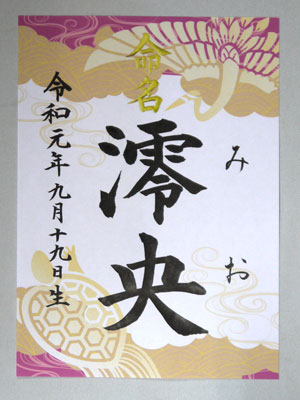 命名
澪央
みお
令和元年九月十九日生